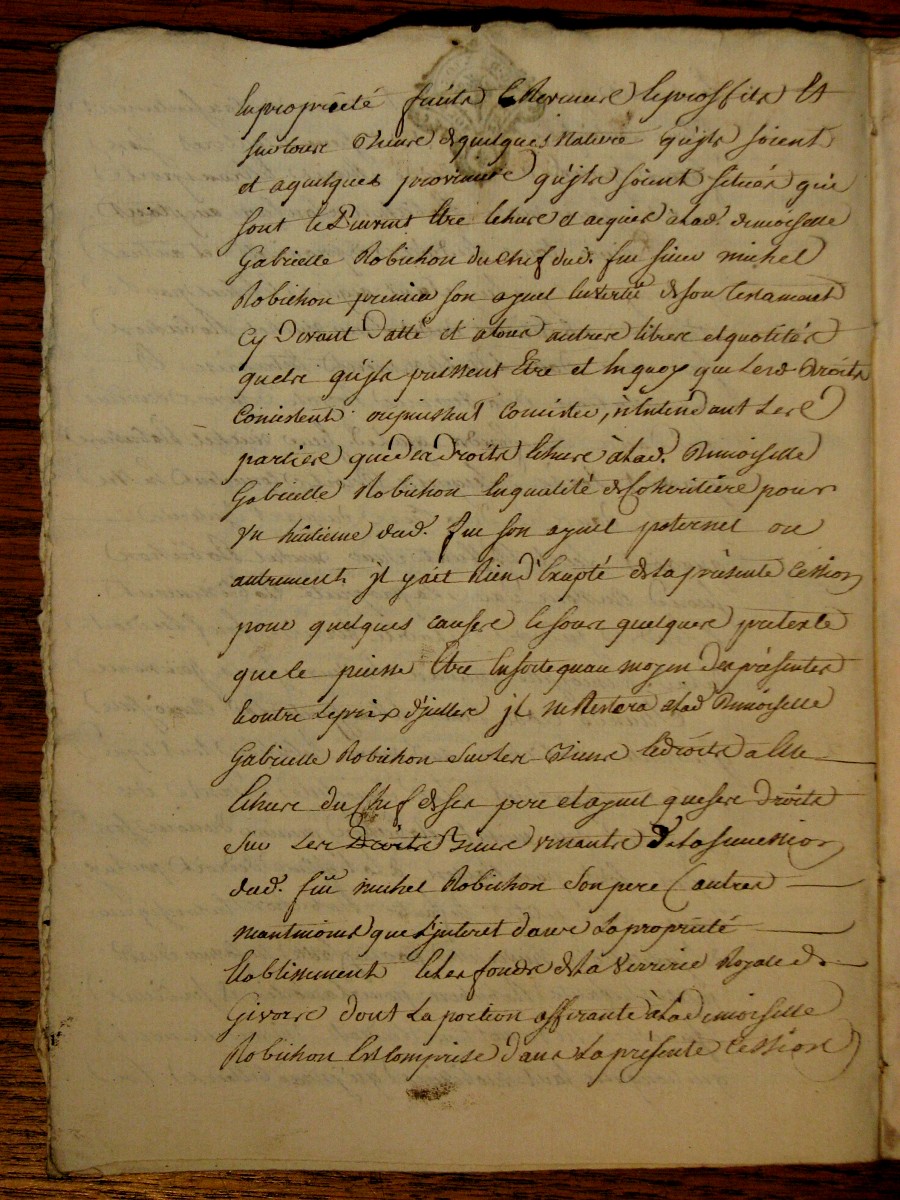 la propriété fruits & revenus & proffits et
sur tous biens de quelques nature qu'jls soient
et a quelques qu'jls soient situés qui
sont & peuvent être echus et acquis a lad. demoiselle
Gabrielle Robichon du chef dud. feu sieur michel
Robichon premier son ayeul en vertu de son testament
cy devant datté et a tous autres titres et quotités
quels qu'jls puissent être et en quoy que lesd. droits
consistent ou puissent consister, n'entendant les
parties que des droits echus à lad. Demoiselle
Gabrielle Robichon en qualité de cohéritière pour
un huitieme dud. feu son ayeul paternel ou
autrement jl y ait rien d'excepté de la présente cession
pour quelques causes & sous quelques pretexte
que ce puisse être en sorte quau moyen des présentes
& outre le prix d'jcelles jl ne restera a lad. Demoiselle
Gabrielle Robichon sur les biens & droits a elle
echus du chef de ses pere et ayeul que ses droits
sur les droits biens venants de la succession
dud. feu michel Robichon son pere autres
neantmoins que l'jnteret dans la propriété
etablissement & les fonds de la verrerie Royale de
Givors dont la portion afferante à lad. demoiselle
Robichon est comprise dans la présente cession